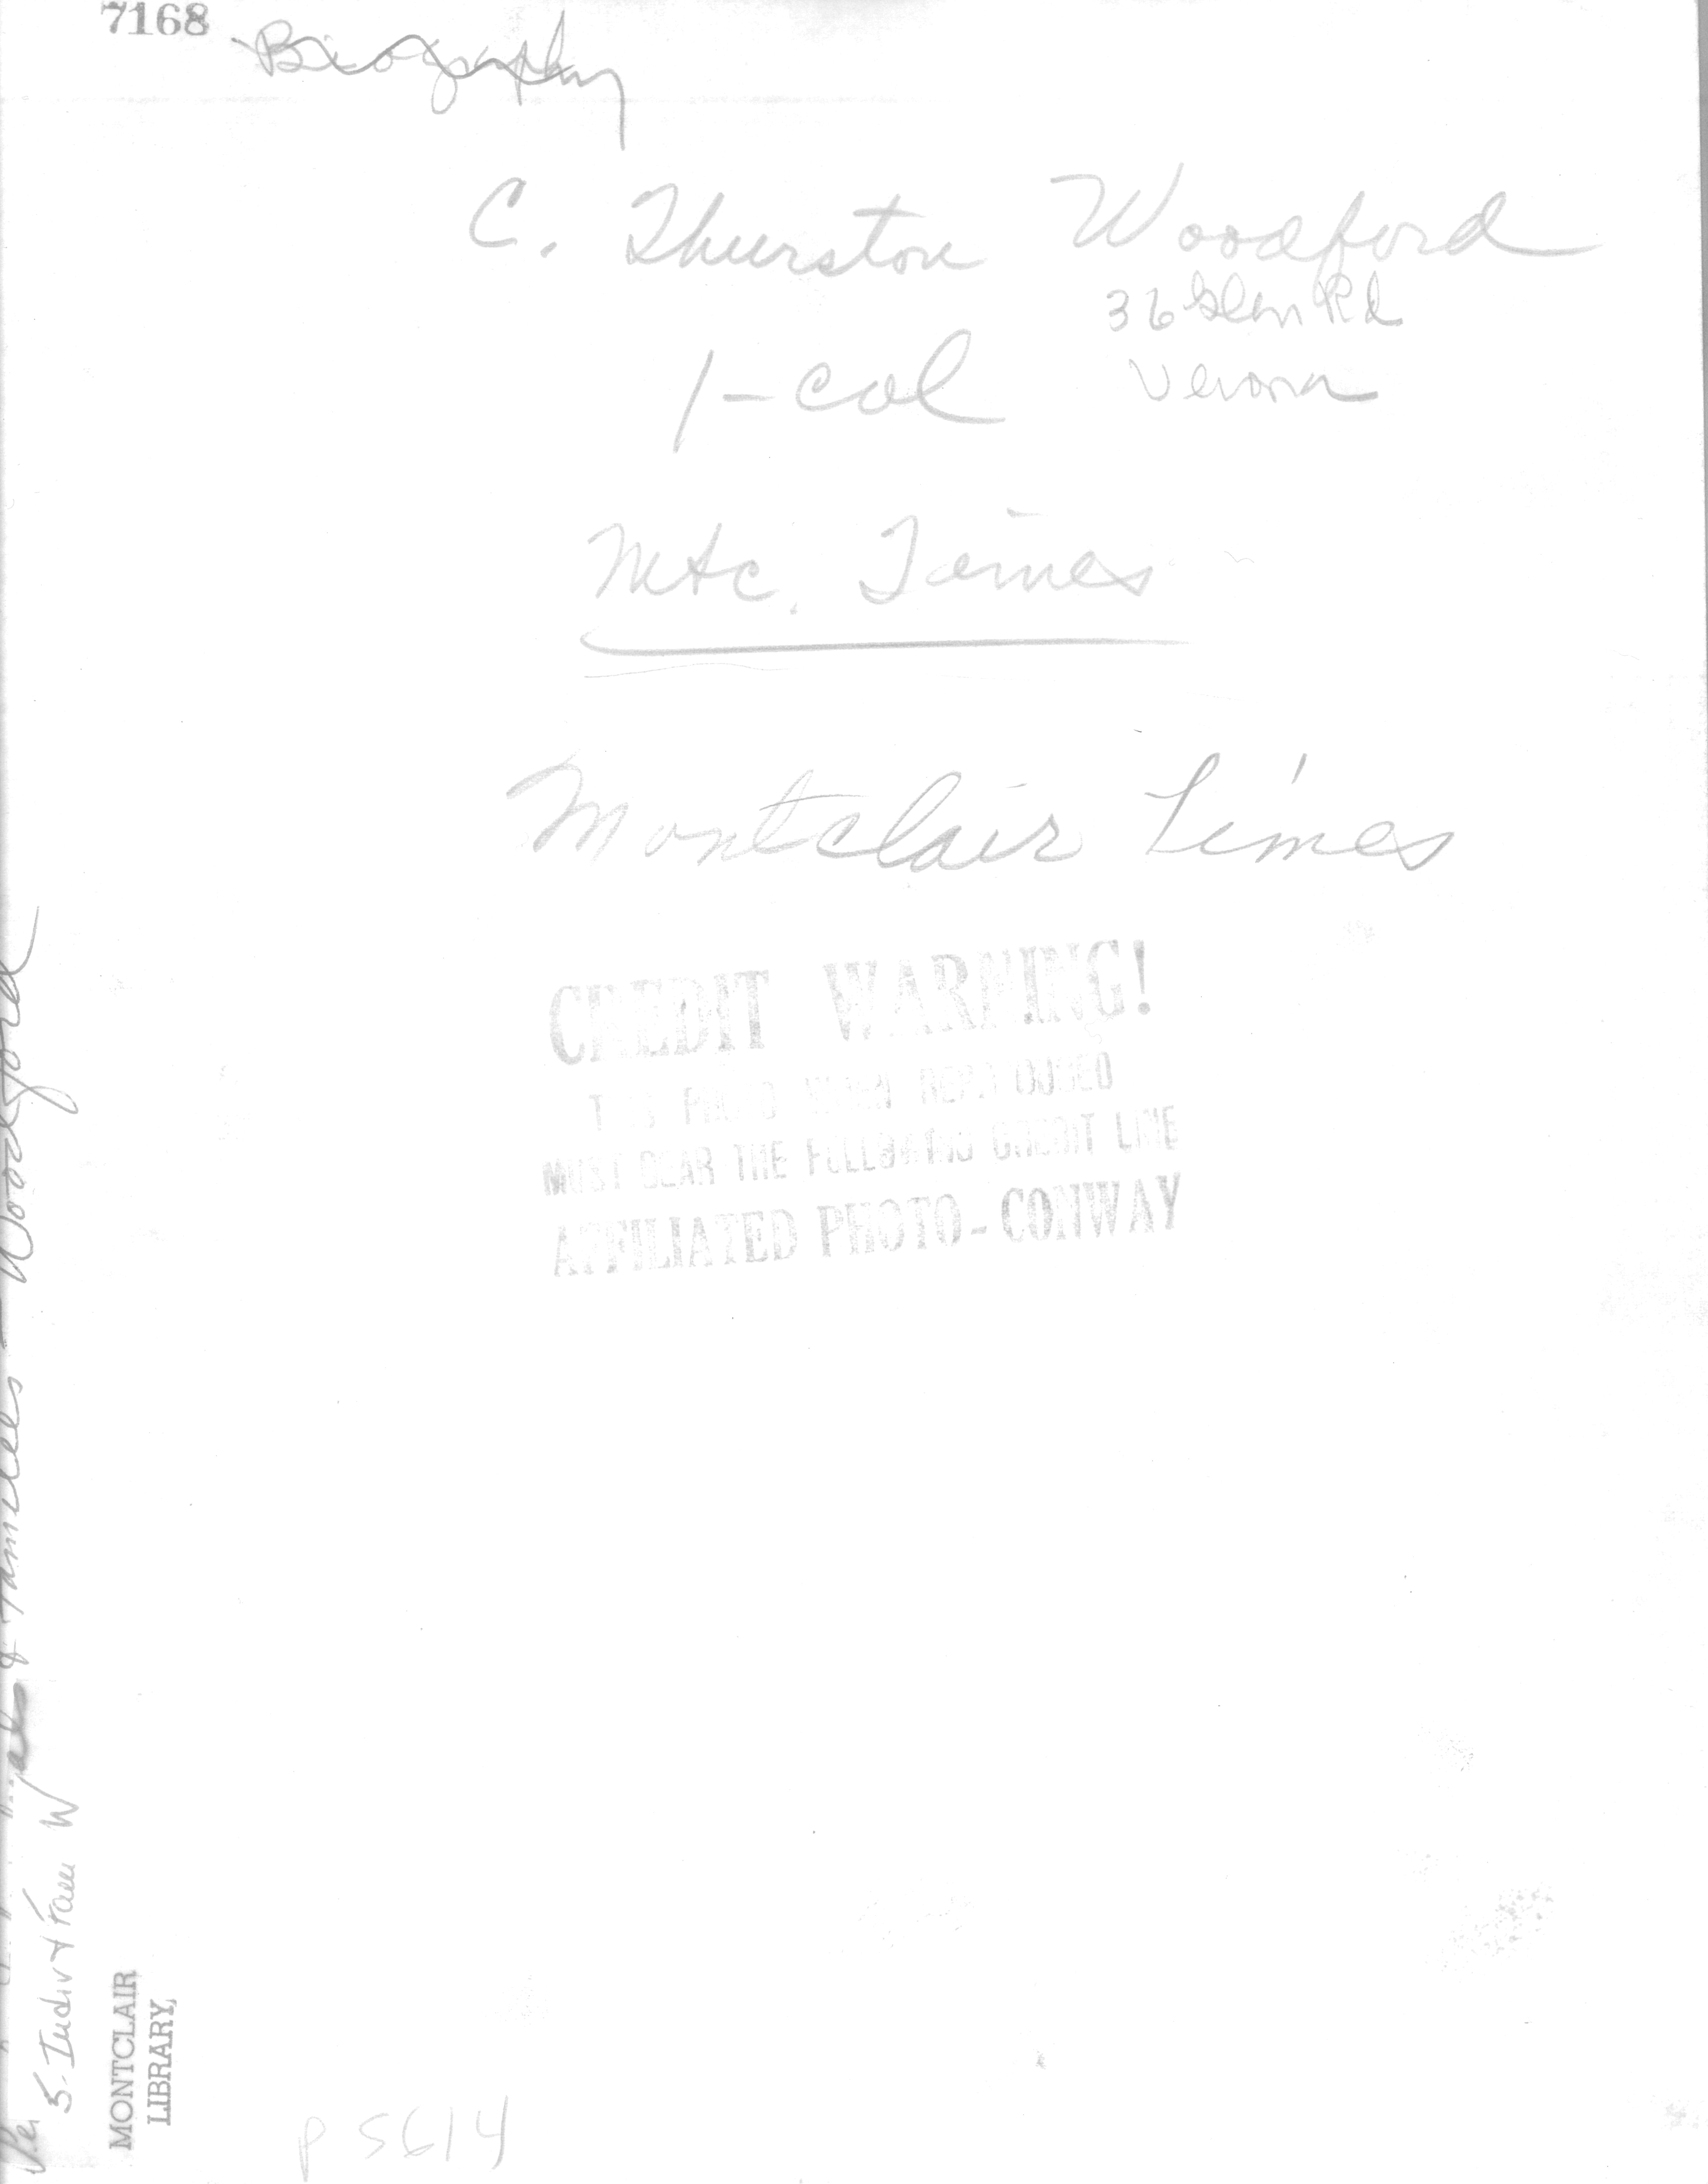 7168
Biography
C. Thurston Woodford
36 Glen Rd
Verona
1-col
Mtc. Times
Montclair Times
CREDIT WARNING!
THIS PHOTO WHEN REPRODUCED
MUST BEAR THE FOLLOWING CREDIT LINE
AFFILIATED PHOTO - CONWAY
& Families - Woodford
5- Indiv + Fam W
MONTCLAIR
LIBRARY,
P 5614